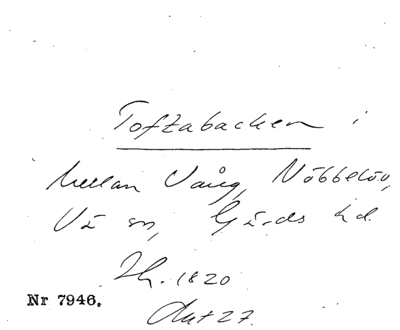 Toftabacken i
Mellan Vång, Nöbbelöv,
Vä sn, Gärds hd.
Sk. 1820
Akt 27.
Nr 7946.